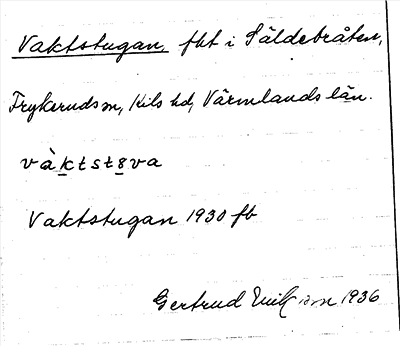 Vaktstugan, fht i Säldebråten,
Frykeruds sn, Kils hd, Värmlands län.
vàktstɞva
Vaktstugan 1930 fb
Gertrud Eriksson 1936